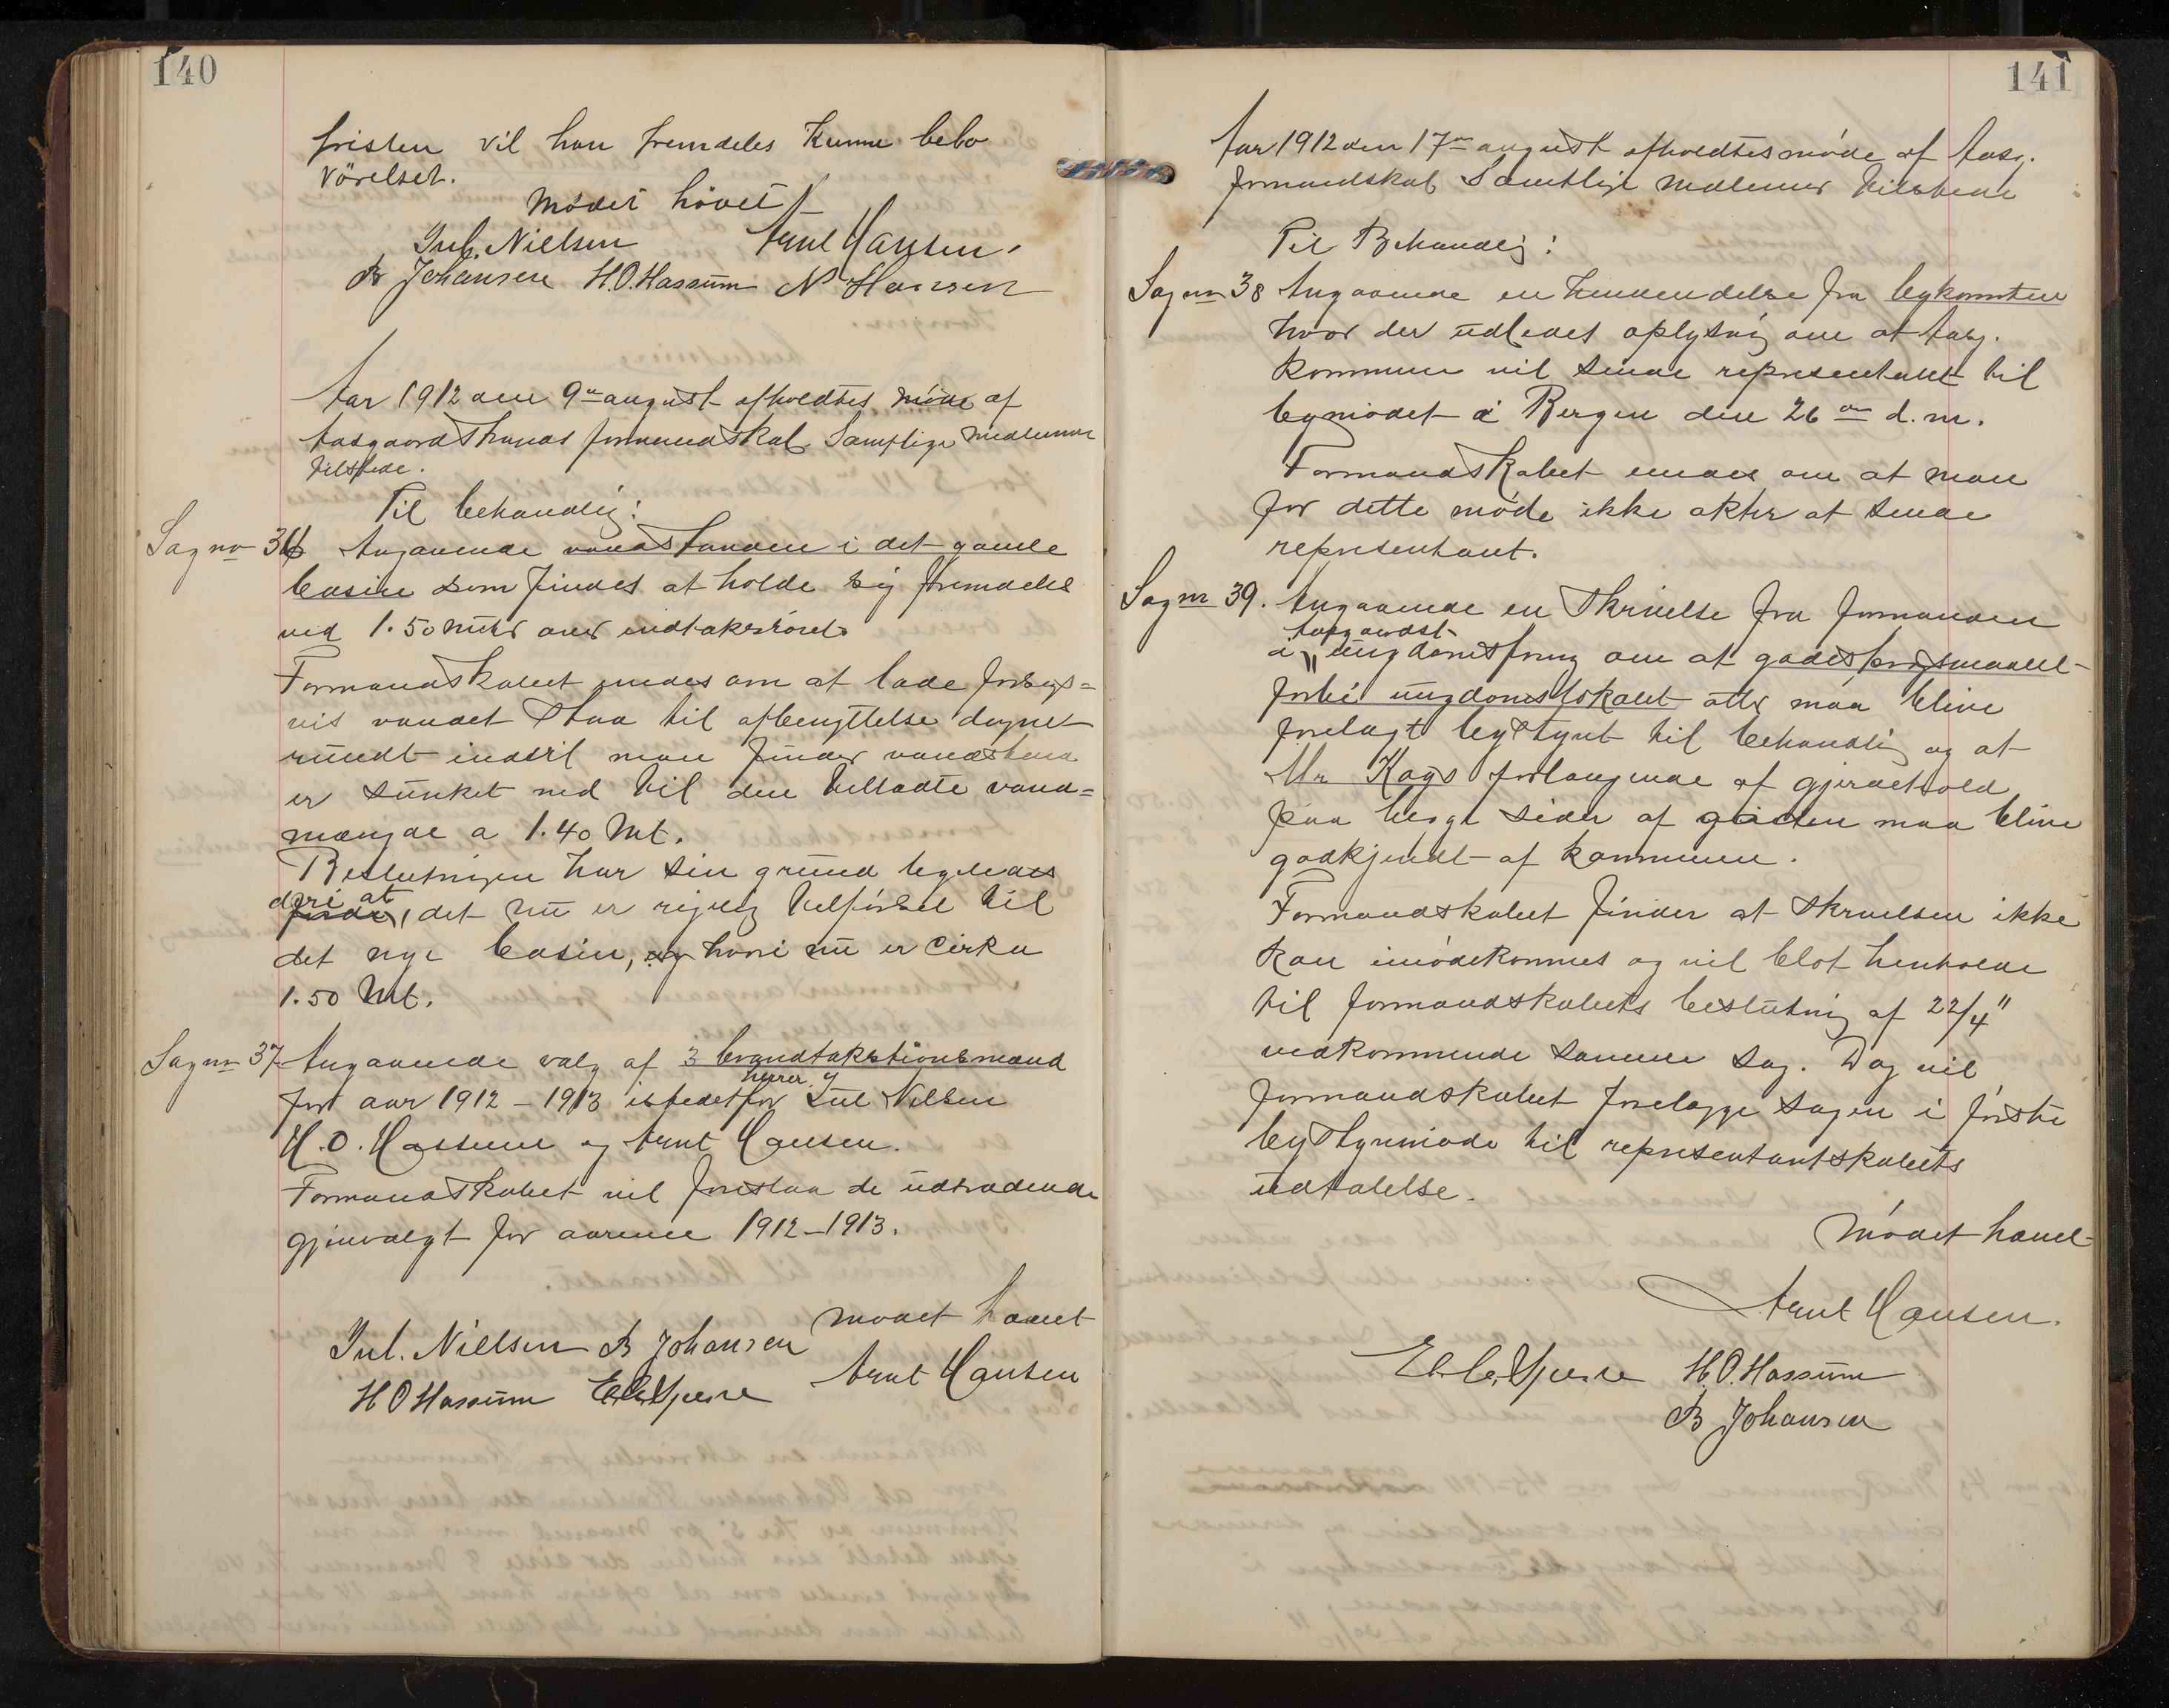 140
fristen vil han fremdeles kunne bebo
vörelset.
Mödet hävet
Jul. Nielsen Arnt Hansen.
B Johansen H.O.Hassum N Hansen
Aar 1912 den 9de august afholdtes möde af
Aasgaardstrands formandskab Samtlige medlemmer
tilstede.
Til behandlig:
Sag no 36 Angaaende vandstanden i det gamle
basin som findes at holde sig fremdeles
ved 1.50 meter over indtaksröret.
Formandskabet enedes om at lade forsögs=
vis vandet staa til afbenyttelse dögnet
rundt indtil man finder vandstand
er sunket ned til den tilladte vand=
mængde a 1.40 Mt.
Beslutningen har sin grund ligeledes
deri at det nu er rigelig tilförsel til
det nye basin, hvori nu er cirka
1.50 Mt.
Sag no 37 Angaaende valg af 3 brandtakstionsmænd
for aar 1912 – 1913 istedetfor herrer Jul Nilsen
H.O. Hassum og Arnt Hansen.
Formandskabet vil foreslaa de udtrædende
gjenvalgt for aarene 1912–1913.
Mödet hævet
Jul. Nielsen B Johansen
Arnt Hansen
H O Hassum
141
Aar 1912 den 17de august afholdtes möde af Aasg.
formandskab Samtlige medlemer tilstede
Til Behandlig:
Sag no 38 Angaaende en henvendelse fra bykomiteen
hvor der udbedes oplysnig om at Aasg.
kommune vil sende representant til
bymödet i Bergen den 26de d.m.
Formandskabet enedes om at man
for dette möde ikke akter at sende
representant.
Sag no 39. Angaaende en skrivelse fra formanden
Aasgaardst.
i ungdomsforng om at gadespörgsmaalet
forbi ungdomslokalet atter maa blive
forelagt bystyret til behandlig og at
Mr Kays forlangende af gjerdehold
paa begge sider af gaden maa blive
godkjendt af kommunen.
Formandskabet finder at skrivelsen ikke
kan imödekommes og vil blot henholde
til formandskabets beslutnig af 22/4"
vedkommende samme sag. Dog vil
formandskabet forelægge sagen i förste
bystyremöde til representantskabets
udtalelse.
Mödet hævet
Arnt Hansen.
H.O.Hassum
B Johansen